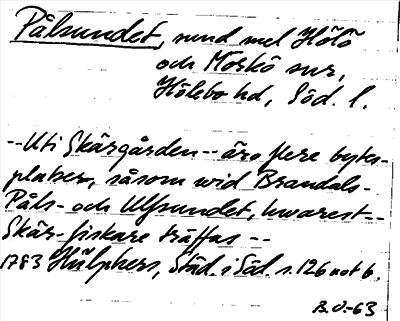 Pålsundet, sund mel Hölö
och Mörkö snr,
Hölebo hd, Söd. l.
--Uti Skärgården-- äro flere bytes-
platser, såsom wid Brandals-
Påls- och Ulfsundet, hwarest--
Skär-fiskare träffas --
1783 Hülphers, Städ. i Söd. s. 126 not b.
B.O.-63